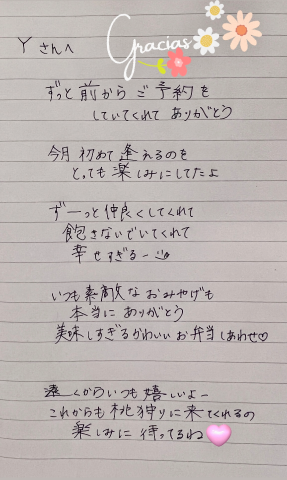 Yさんへ
Gracias
ずっと前からご予約を
していてくれてありがとう
今月初めて逢えるのを
とっても楽しみにしてたよ
ずーっと仲良くしてくれて
飽きないでいてくれて
幸せすぎるー
いつも素敵なおみやげも
本当にありがとう
美味しすぎるかわいいお弁当しあわせ♡
遠くからいつも嬉しいよー
これからも桃狩りに来てくれるの
楽しみに待ってるね